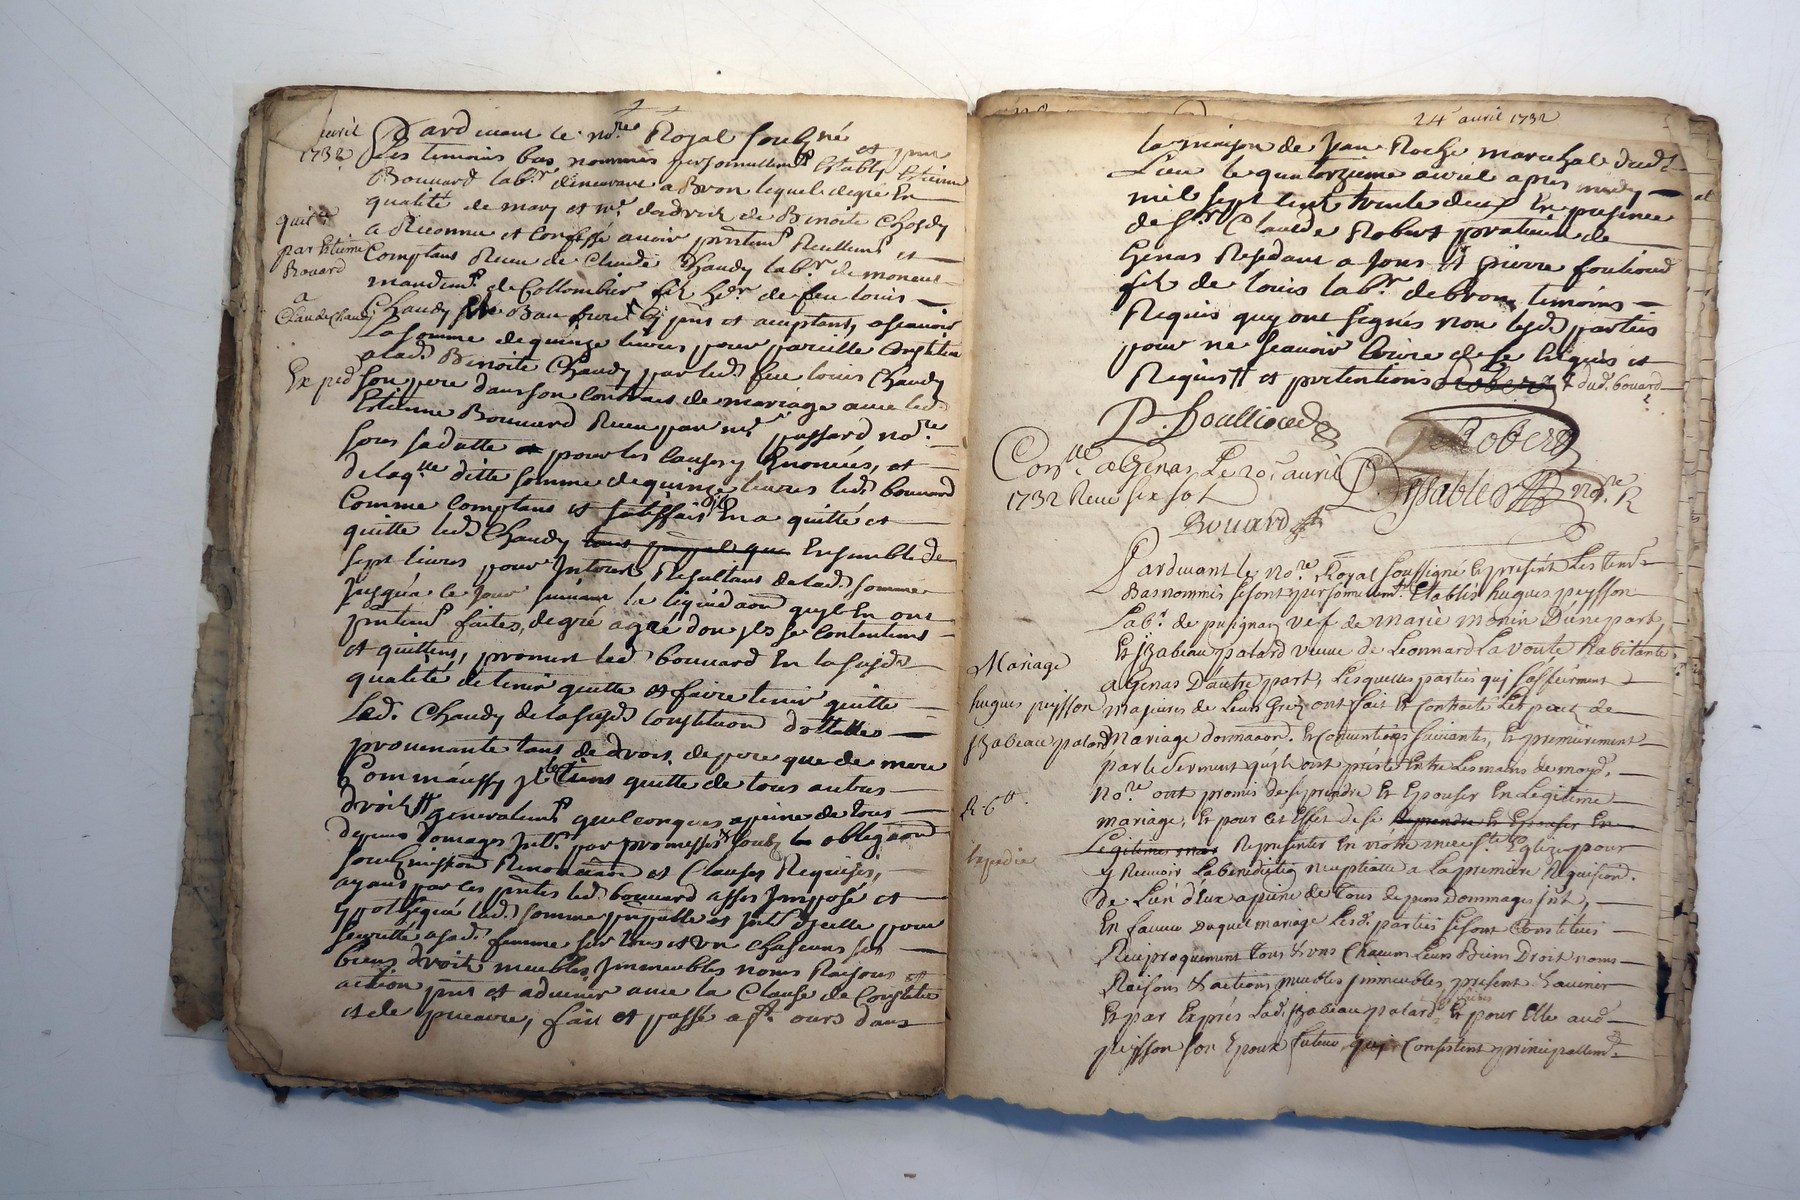 avril
1732
Pardevant le no.re Royal soubzné et pnt
les temoins bas nommés personnellemt estably Estienne
Bouuard lab.r demeurant a Bron lequel degré En
qualité de mary et m.e desdroits de Benoite Chaudy
quitt.e
par Estienne
Bouard
a
Claude Chaudy
Exped
a Reconnu et Confessé auoir pntemt Reellemt et
Comptant Receu de Claude Chaudy lab.r de
mandemt de Collombier fils hér. de feu louis
Chaudy pnt et aceptant, ascauoir
la somme de quinze liures pour pareille Constituee
a lad. Benoite Chaudy par led. feu louis Chaudy
son pere dans son Contrat de mariage auec led.
Estienne Bouuard Receu par m.e passard no.re
sous sa datte pour les Causes y Enoncées, et
de laq.lle ditte somme de quinze liures led. bouuard
Comme Comptant et satisfait En a quitté et
quitte led. Chaudy Ensemble de
sept liures pour Interest Resultant de lad. somme
Jusqu'a le Jour suiuant la liquidaon quyls En ont
pntemt faites, de gré a gré dont Jls se Contentent
et quittent, promet led. bouuard En la susd.
qualité de tenir quitte et faire tenir quitte
Led. Chaudy de la susd. Constituon dottalle
prouenante tant de droit de pere que de mere
Comm'aussy Jl le tient quitte de tous autres
droits generalemt quelconques a peine de tous
depens domages Int. par promesse soubz obligaon
soubmission Renonciaon et Clauses Requises,
ayant par ces pntes led. bouuard asses Imposé et
ypothequé lad. somme prinpalle et Int. d'Jcelle pour
seuretté a sad. femme sur tous et vn chascuns ses
biens droits meubles Jmmeubles noms Raisons et
action pnt et aduenir auec la Clause de Constitut
et de precaire, fait et passé a
24 auril 1732
la maison de Jean Roche marechal dud.t
Lieu le quatorzieme auril apres midy
mil sept cent trente deux En presence
de S.r Claude Robert praticien de
Genas Residant a Jons et pierre foulioud
fils de louis lab.r de bron temoins
Requis quy ont signés non lesd. parties
pour ne scauoir Ecrire de ce Enquis et
Requis dud. bouard
P. foullioud Robert
Con.lle a Genas Le 20.e auril
1732 Receu six sols
Bouard
Dessables no.re R
Pardeuant le No.re Royal soussigné Et present Les tem.
Bas nommés se sont personnelemt Etablis hugues peysson
Lab.r de pusignan vef de marie monin D'une part,
Et Jzabeau palard veuue de Leonnard La voute habitante
a Genas D'autre part, Lesquelles parties
Mariage
hugues peysson
Jzabeau palard
R. 6.tt
Expedie
majeures de Leurs Gréz ont fait Et Contraité Les pact de
Mariage donnaaon. Et Conuentions suiuantes, Et premierement
par le serment qu'ils ont presté Entre Les mains de moyd.
No.re ont promis de se prendre Et Epouser En Legitime
mariage, Et pour Cet Effet de se prendre Et Epouser En
Legitimes mar Représenter En nôstre mere s.te Eglize pour
y Receuoir La benediction nuptialle a La premiere Requision.
de L'un d'Eux a peine de tous depens Dommages Int,
En faueur Duquel mariage Lesd. parties se sont Constitués
Reciproquement tous & vns Chacun Leurs Biens Droit noms
Raisons & actions meubles Jmmeubles, present & auenir
Et par Exprés Lad. Jzabeau palard Et pour Elle aud.
peysson son Epoux futeur, quj Consistent principallemt.